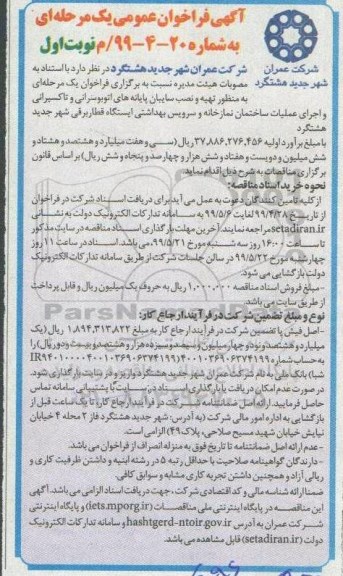 آگهی فراخوان عمومی یک مرحله‌ای
به شماره ۲۰-۴-۹۹/م نوبت اول
شرکت عمران
شهر جدید هشتگرد
شرکت عمران شهر جدید هشتگرد در نظر دارد با استناد به
مصوبات هیئت مدیره نسبت به برگزاری فراخوان یک مرحله‌ای
به منظور تهیه و نصب سایبان پایانه های اتوبوسرانی و تاکسیرانی
و اجرای عملیات ساختمان نمازخانه و سرویس بهداشتی ایستگاه قطار برقی شهر جدید
هشتگرد
با مبلغ برآورد اولیه ۳۷,۸۸۶,۲۷۶,۴۵۶ ریال (سی و هفت میلیارد و هشتصد و هشتاد و
شش میلیون و دویست و هفتاد و شش هزار و چهارصد و پنجاه و شش ریال) بر اساس قانون
برگزاری مناقصات به شرح ذیل اقدام نماید.
نحوه خرید اسناد مناقصه:
از کلیه تامین کنندگان دعوت به عمل می آید برای دریافت اسناد شرکت در فراخوان
از تاریخ ۹۹/۴/۲۸ لغایت ۹۹/۵/۶ به سامانه تدارکات الکترونیک دولت به نشانی
setadiran.ir مراجعه نمایند. آخرین مهلت بارگذاری اسناد مناقصه در سایت مذکور
تا ساعت ۱۶:۰۰ روز سه شنبه مورخ ۹۹/۵/۲۱ می‌باشد. اسناد در ساعت ۱۱ روز
چهارشنبه مورخ ۹۹/۵/۲۲ در سالن جلسات شرکت از طریق سامانه تدارکات الکترونیک
دولت بازگشایی می شود.
- مبلغ فروش اسناد مناقصه ۱,۰۰۰,۰۰۰ ریال به حروف یک میلیون ریال و قابل پرداخت
از طریق سایت می باشد.
نوع و مبلغ تضمین شرکت در فرآیند ارجاع کار:
- اصل فیش یا تضمین شرکت در فرآیند ارجاع کار به مبلغ ۱,۸۹۴,۳۱۳,۸۲۲ ریال (یک
میلیارد و هشتصد و نود و چهار میلیون و سیصد و سیزده هزار و هشتصد و بیست و دو ریال) را
به حساب شماره ۴۰۰۱۰۳۶۹۰۶۳۷۴۱۹۹
شبا) بانک ملی به نام شرکت عمران شهر جدید هشتگرد واریز و در سایت بارگذاری شود.
در صورت عدم امکان دریافت یا بارگذاری اسناد در سایت با پشتیبانی سامانه تماس
حاصل فرمایید. ارائه اصل ضمانتنامه شرکت در فرآیند ارجاع کار تا یک ساعت قبل از
بازگشایی به اداره امور مالی شرکت (به آدرس: شهر جدید هشتگرد فاز ۲ محله ۴ خیابان
نیایش خیابان شهید مسیح صلاحی، پلاک ۴۹) الزامی است.
- عدم ارائه اصل ضمانتنامه تا تاریخ فوق به منزله انصراف از فراخوان می باشد.
- دارندگان گواهینامه صلاحیت با حداقل رتبه ۵ در رشته ابنیه و داشتن ظرفیت کاری و
ریالی آزاد و همچنین داشتن تجربه کاری مشابه و سوابق کافی.
ضمنا ارائه شناسه ملی و کد اقتصادی شرکت، جهت دریافت اسناد الزامی می باشد. آگهی
این مناقصه در پایگاه اینترنتی ملی مناقصات (iets.mporg.ir) و پایگاه اینترنتی
شرکت عمران به آدرس hashtgerd-ntoir.gov.ir و سامانه تدارکات الکترونیک
دولت (setadiran.ir) قابل مشاهده می باشد.